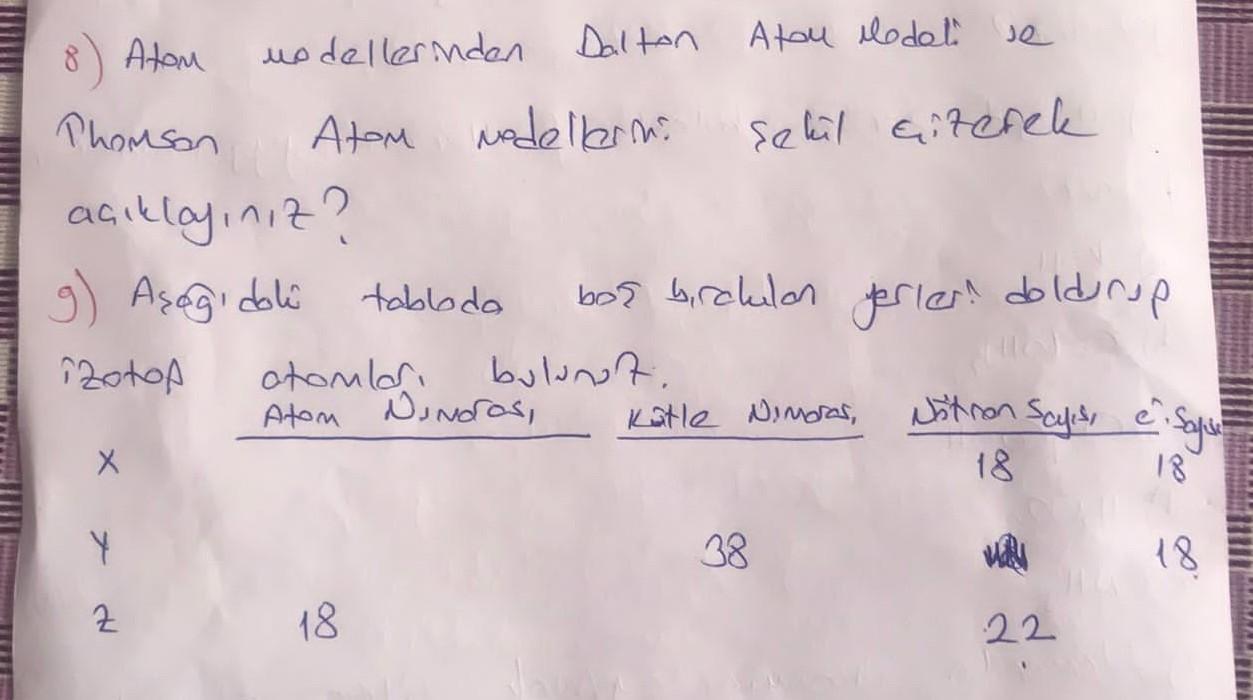 8) Atom modellerinden Dalton Atom Modeli ve
Thomson Atom modellerini şekil çizerek
açıklayınız?
9) Aşağıdaki tabloda boş bırakılan yerleri doldurup
izotop atomları bulunuz.
Atom Numarası Kütle Numarası Nötron Sayısı e⁻ Sayısı
X 18 18
Y 38 18
Z 18 22